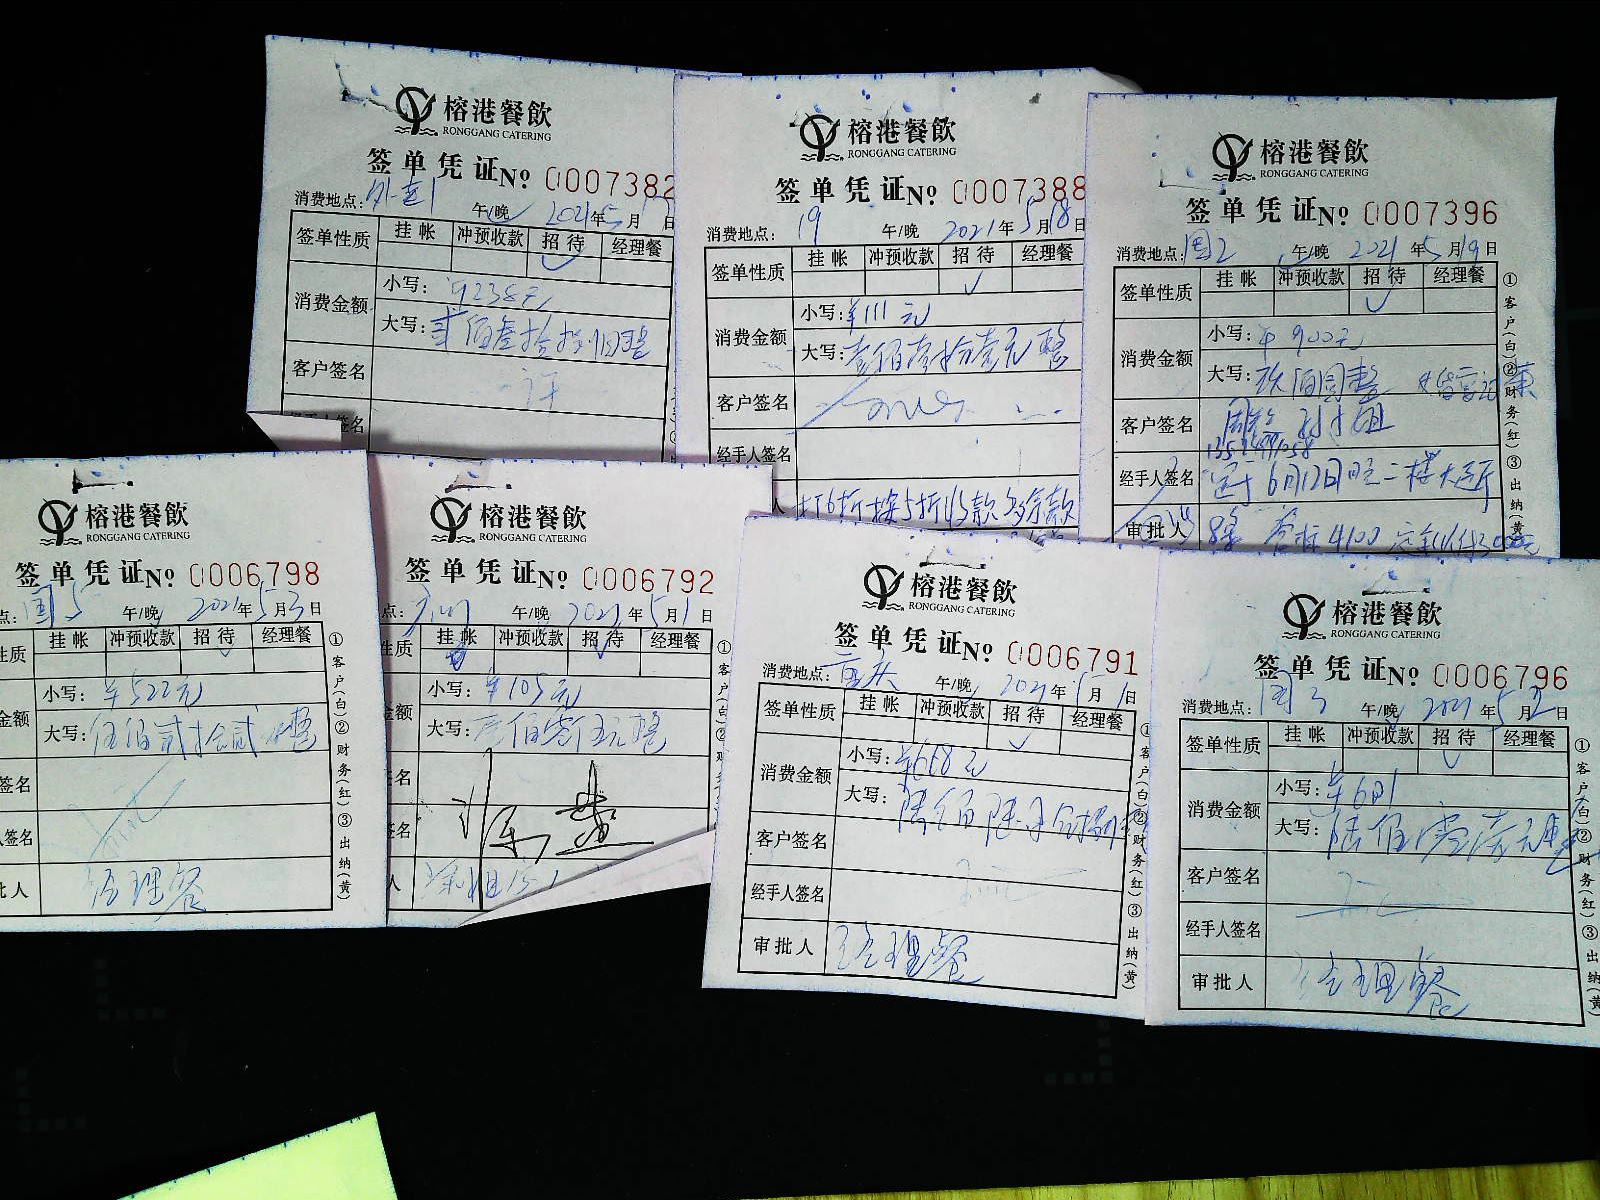 榕港餐飲
RONGGANG CATERING
签单凭证No 0007382
消费地点: 午/晚 2021年5月17日
签单性质 挂帐 冲预收款 招待 经理餐
消费金额 小写: 238元
大写: 贰佰叁拾捌圆整
客户签名 许
榕港餐飲
RONGGANG CATERING
签单凭证No 0007388
消费地点: 19 午/晚 2021年5月18日
签单性质 挂帐 冲预收款 招待 经理餐
消费金额 小写: ¥111元
大写: 壹佰壹拾壹元整
客户签名
经手人签名
打6折按5折收款多余款
榕港餐飲
RONGGANG CATERING
签单凭证No 0007396
消费地点: 国2 午/晚 2021年5月19日
签单性质 挂帐 冲预收款 招待 经理餐
消费金额 小写: ¥900元
大写: 玖佰圆整
客户签名
经手人签名 6月12日 二楼大厅
审批人 8桌 4100
①客户(白)②财务(红)③出纳(黄)
榕港餐飲
RONGGANG CATERING
签单凭证No 0006798
点: 国5 午/晚 2021年5月3日
性质 挂帐 冲预收款 招待 经理餐
金额 小写: ¥522元
大写: 伍佰贰拾贰元整
签名
人签名
批人 经理餐
①客户(白)②财务(红)③出纳(黄)
榕港餐飲
RONGGANG CATERING
签单凭证No 0006792
点: 午/晚 2021年5月1日
性质 挂帐 冲预收款 招待 经理餐
金额 小写: ¥105元
大写: 壹佰零伍元整
签名
签名
人
榕港餐飲
RONGGANG CATERING
签单凭证No 0006791
消费地点: 重庆 午/晚 2021年5月1日
签单性质 挂帐 冲预收款 招待 经理餐
消费金额 小写: ¥668元
大写: 陆佰陆拾捌
客户签名
经手人签名
审批人 经理餐
①客户(白)②财务(红)③出纳(黄)
榕港餐飲
RONGGANG CATERING
签单凭证No 0006796
消费地点: 国3 午/晚 2021年5月2日
签单性质 挂帐 冲预收款 招待 经理餐
消费金额 小写: ¥601
大写: 陆佰零壹元整
客户签名
经手人签名
审批人 经理餐
①客户(白)②财务(红)③出纳(黄)